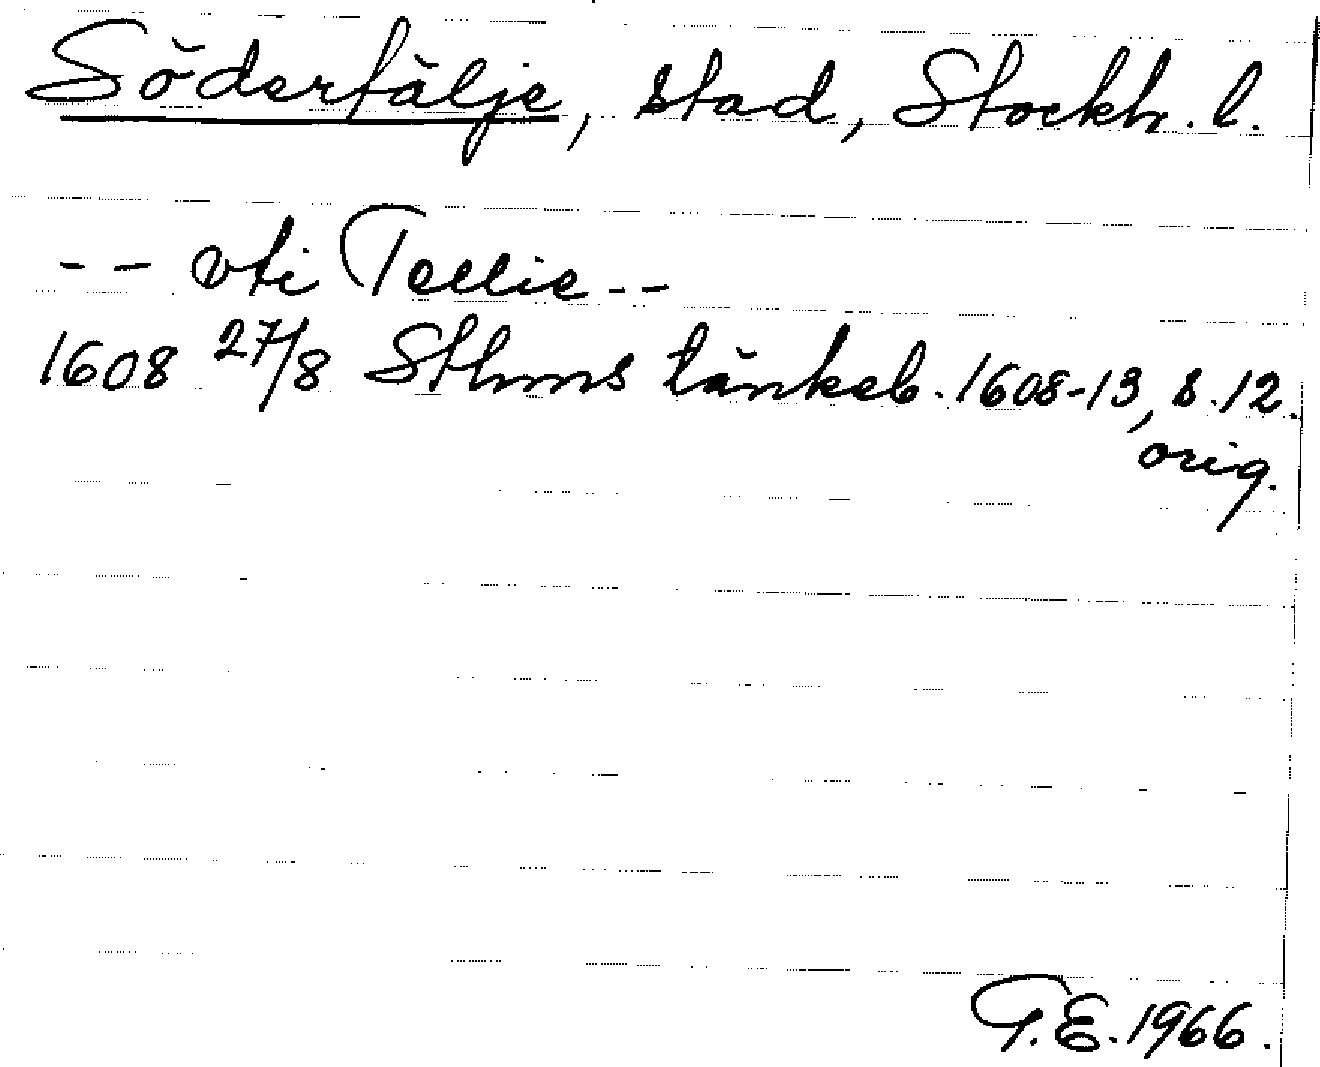 Södertälje, stad, Stockh. l.
-- vti Tellie --
1608 27/8 Sthms tänkeb. 1608-13, s. 12.
orig.
T.E. 1966.